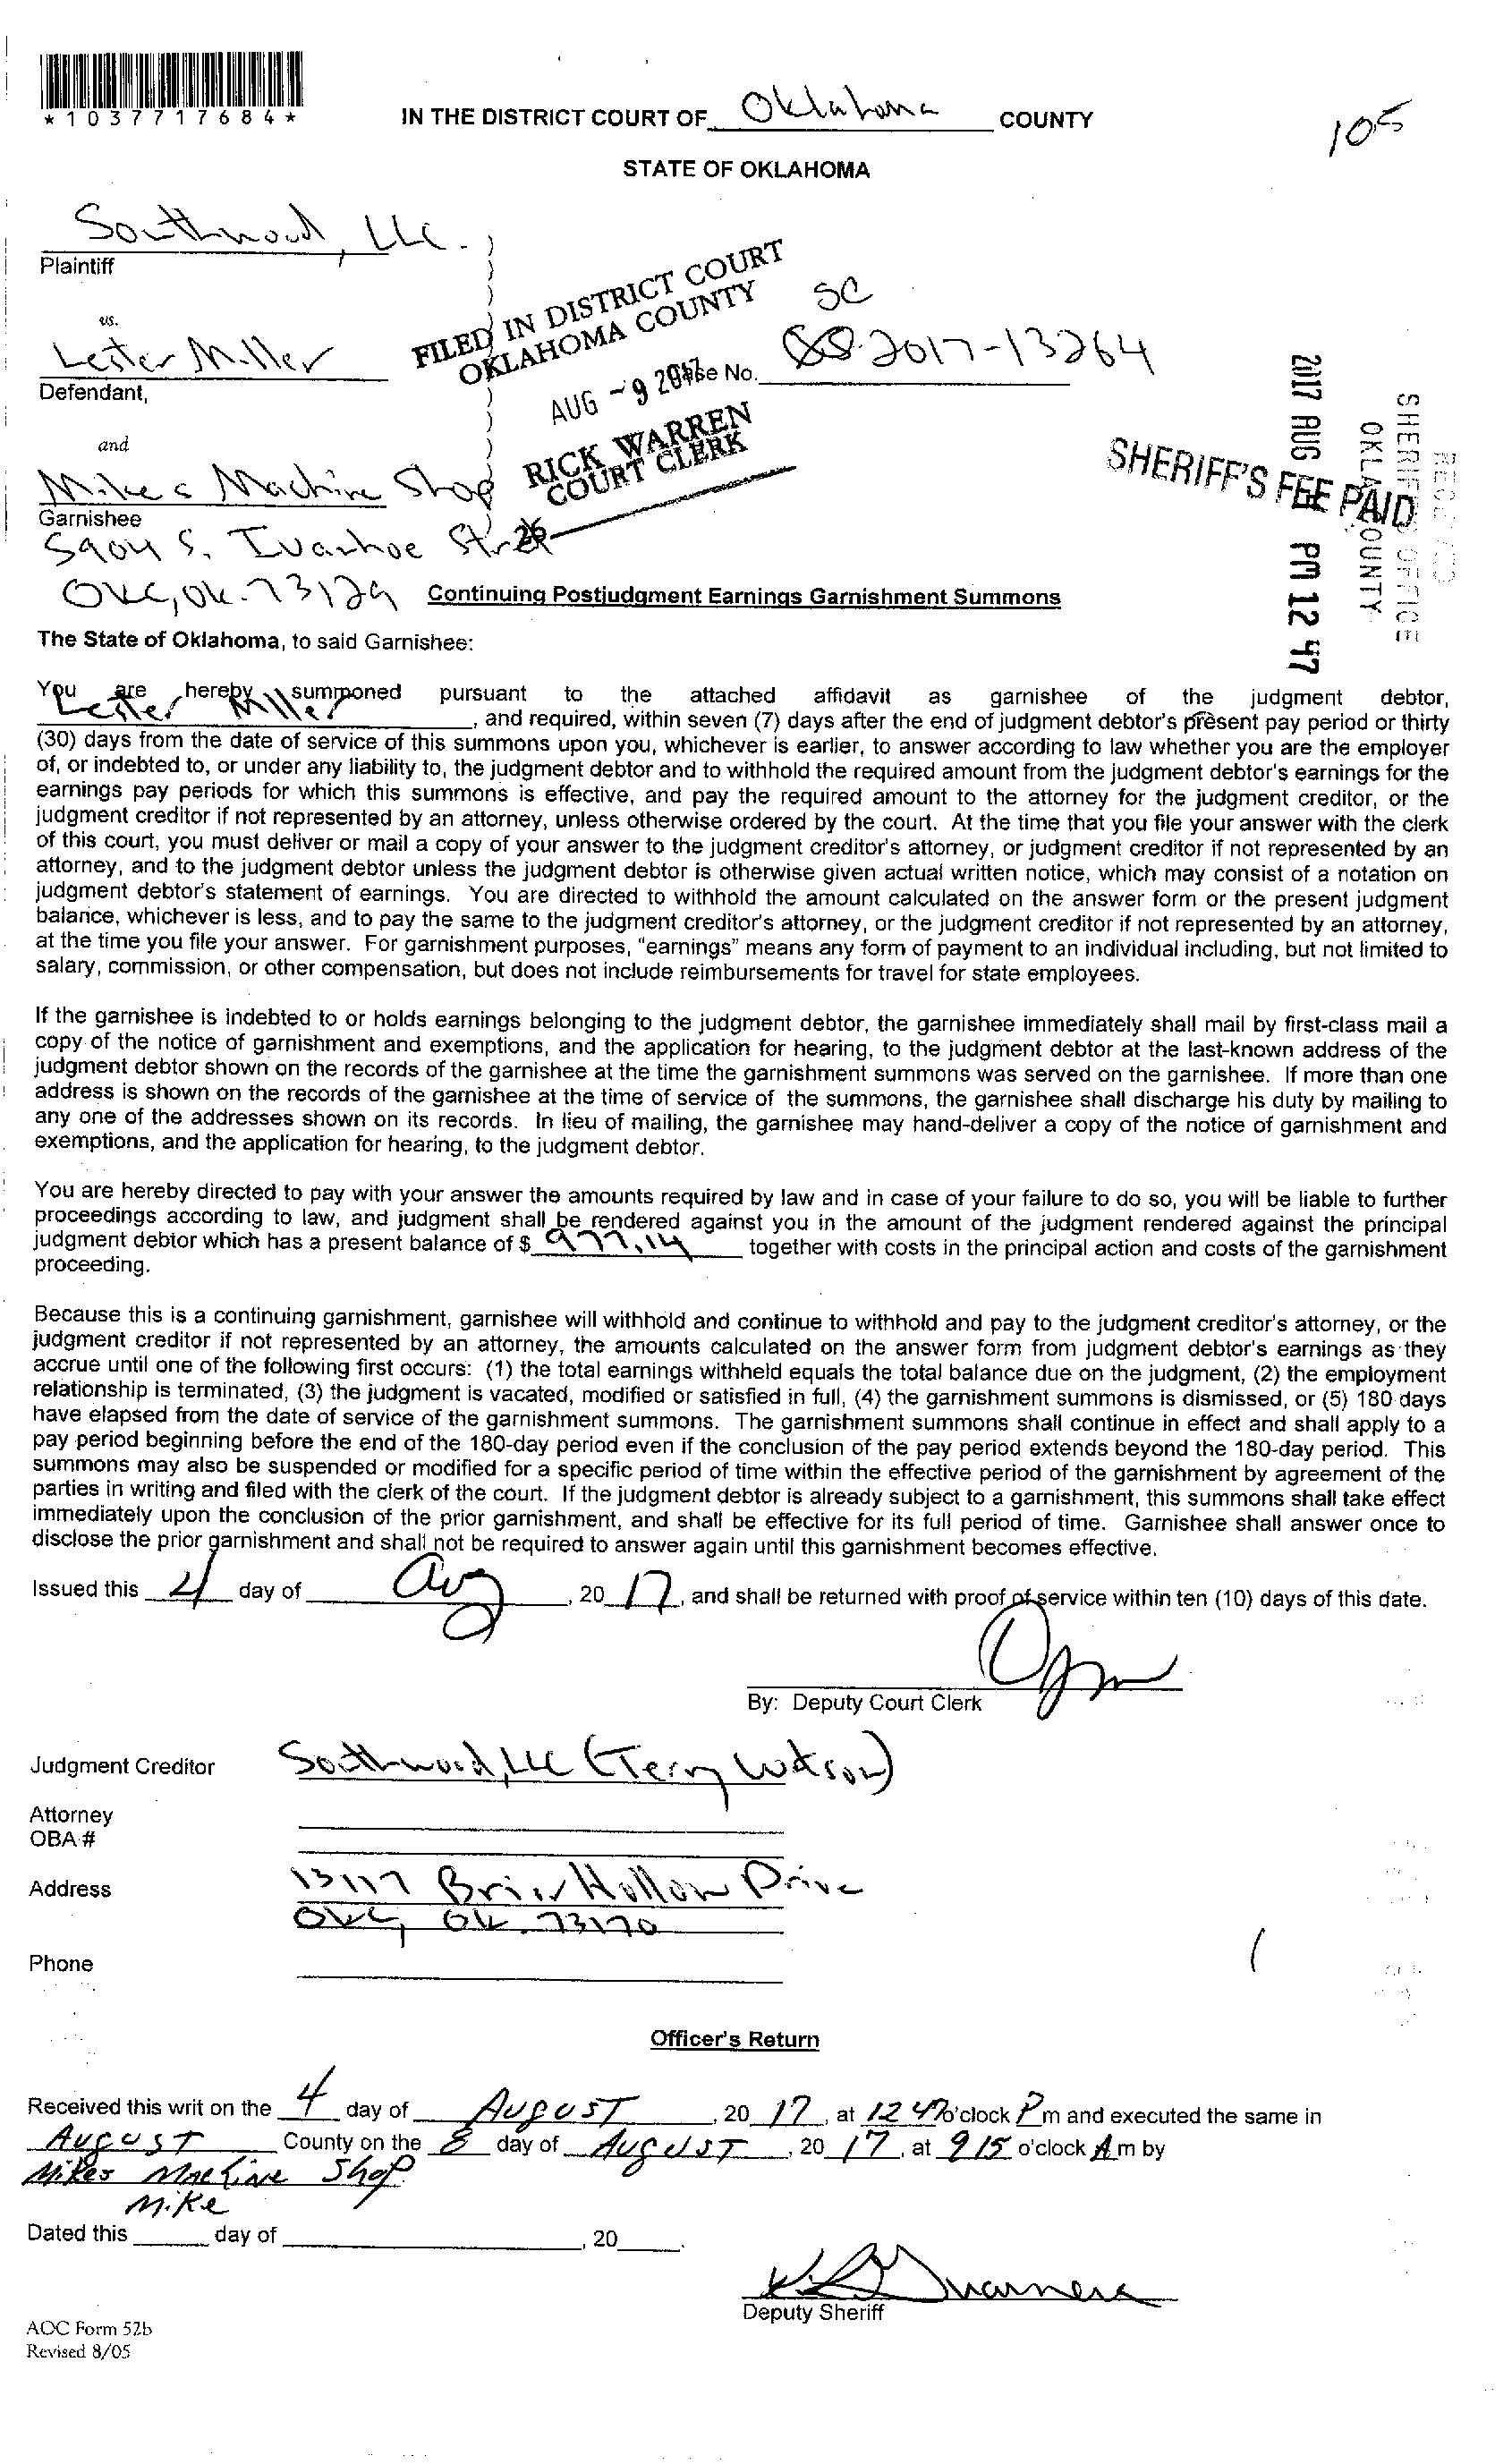 *1037717684*
IN THE DISTRICT COURT OF Oklahoma COUNTY
105
STATE OF OKLAHOMA
Southwood, LLC.
Plaintiff
vs.
FILED IN DISTRICT COURT
OKLAHOMA COUNTY
AUG -9 2017
RICK WARREN
COURT CLERK
26
SC
Case No. 2017-13264
Lester Miller
Defendant,
and
Mikes Machine Shop
Garnishee
5904 S. Ivanhoe Street
OKC, OK. 73129
SHERIFF'S FEE PAID
2017 AUG PM 12 47
SHERIFF'S OFFICE
OKLA COUNTY
Continuing Postjudgment Earnings Garnishment Summons
The State of Oklahoma, to said Garnishee:
You are hereby summoned pursuant to the attached affidavit as garnishee of the judgment debtor,
Lester Miller, and required, within seven (7) days after the end of judgment debtor's present pay period or thirty
(30) days from the date of service of this summons upon you, whichever is earlier, to answer according to law whether you are the employer
of, or indebted to, or under any liability to, the judgment debtor and to withhold the required amount from the judgment debtor's earnings for the
earnings pay periods for which this summons is effective, and pay the required amount to the attorney for the judgment creditor, or the
judgment creditor if not represented by an attorney, unless otherwise ordered by the court. At the time that you file your answer with the clerk
of this court, you must deliver or mail a copy of your answer to the judgment creditor's attorney, or judgment creditor if not represented by an
attorney, and to the judgment debtor unless the judgment debtor is otherwise given actual written notice, which may consist of a notation on
judgment debtor's statement of earnings. You are directed to withhold the amount calculated on the answer form or the present judgment
balance, whichever is less, and to pay the same to the judgment creditor's attorney, or the judgment creditor if not represented by an attorney,
at the time you file your answer. For garnishment purposes, "earnings" means any form of payment to an individual including, but not limited to
salary, commission, or other compensation, but does not include reimbursements for travel for state employees.
If the garnishee is indebted to or holds earnings belonging to the judgment debtor, the garnishee immediately shall mail by first-class mail a
copy of the notice of garnishment and exemptions, and the application for hearing, to the judgment debtor at the last-known address of the
judgment debtor shown on the records of the garnishee at the time the garnishment summons was served on the garnishee. If more than one
address is shown on the records of the garnishee at the time of service of the summons, the garnishee shall discharge his duty by mailing to
any one of the addresses shown on its records. In lieu of mailing, the garnishee may hand-deliver a copy of the notice of garnishment and
exemptions, and the application for hearing, to the judgment debtor.
You are hereby directed to pay with your answer the amounts required by law and in case of your failure to do so, you will be liable to further
proceedings according to law, and judgment shall be rendered against you in the amount of the judgment rendered against the principal
judgment debtor which has a present balance of $ 977.14 together with costs in the principal action and costs of the garnishment
proceeding.
Because this is a continuing garnishment, garnishee will withhold and continue to withhold and pay to the judgment creditor's attorney, or the
judgment creditor if not represented by an attorney, the amounts calculated on the answer form from judgment debtor's earnings as they
accrue until one of the following first occurs: (1) the total earnings withheld equals the total balance due on the judgment, (2) the employment
relationship is terminated, (3) the judgment is vacated, modified or satisfied in full, (4) the garnishment summons is dismissed, or (5) 180 days
have elapsed from the date of service of the garnishment summons. The garnishment summons shall continue in effect and shall apply to a
pay period beginning before the end of the 180-day period even if the conclusion of the pay period extends beyond the 180-day period. This
summons may also be suspended or modified for a specific period of time within the effective period of the garnishment by agreement of the
parties in writing and filed with the clerk of the court. If the judgment debtor is already subject to a garnishment, this summons shall take effect
immediately upon the conclusion of the prior garnishment, and shall be effective for its full period of time. Garnishee shall answer once to
disclose the prior garnishment and shall not be required to answer again until this garnishment becomes effective.
Issued this 4 day of Aug, 20 17, and shall be returned with proof of service within ten (10) days of this date.
By: Deputy Court Clerk
Judgment Creditor Southwood, LLC (Terry Watson)
Attorney
OBA #
Address 13117 Brier Hollow Drive
OKC, OK. 73170
Phone
Officer's Return
Received this writ on the 4 day of AUGUST, 20 17, at 12 47 o'clock P m and executed the same in
AUGUST County on the 8 day of AUGUST, 20 17, at 9 15 o'clock A m by
Mikes Machine Shop
Mike
Dated this ____ day of ____, 20____.
Deputy Sheriff
AOC Form 52b
Revised 8/05